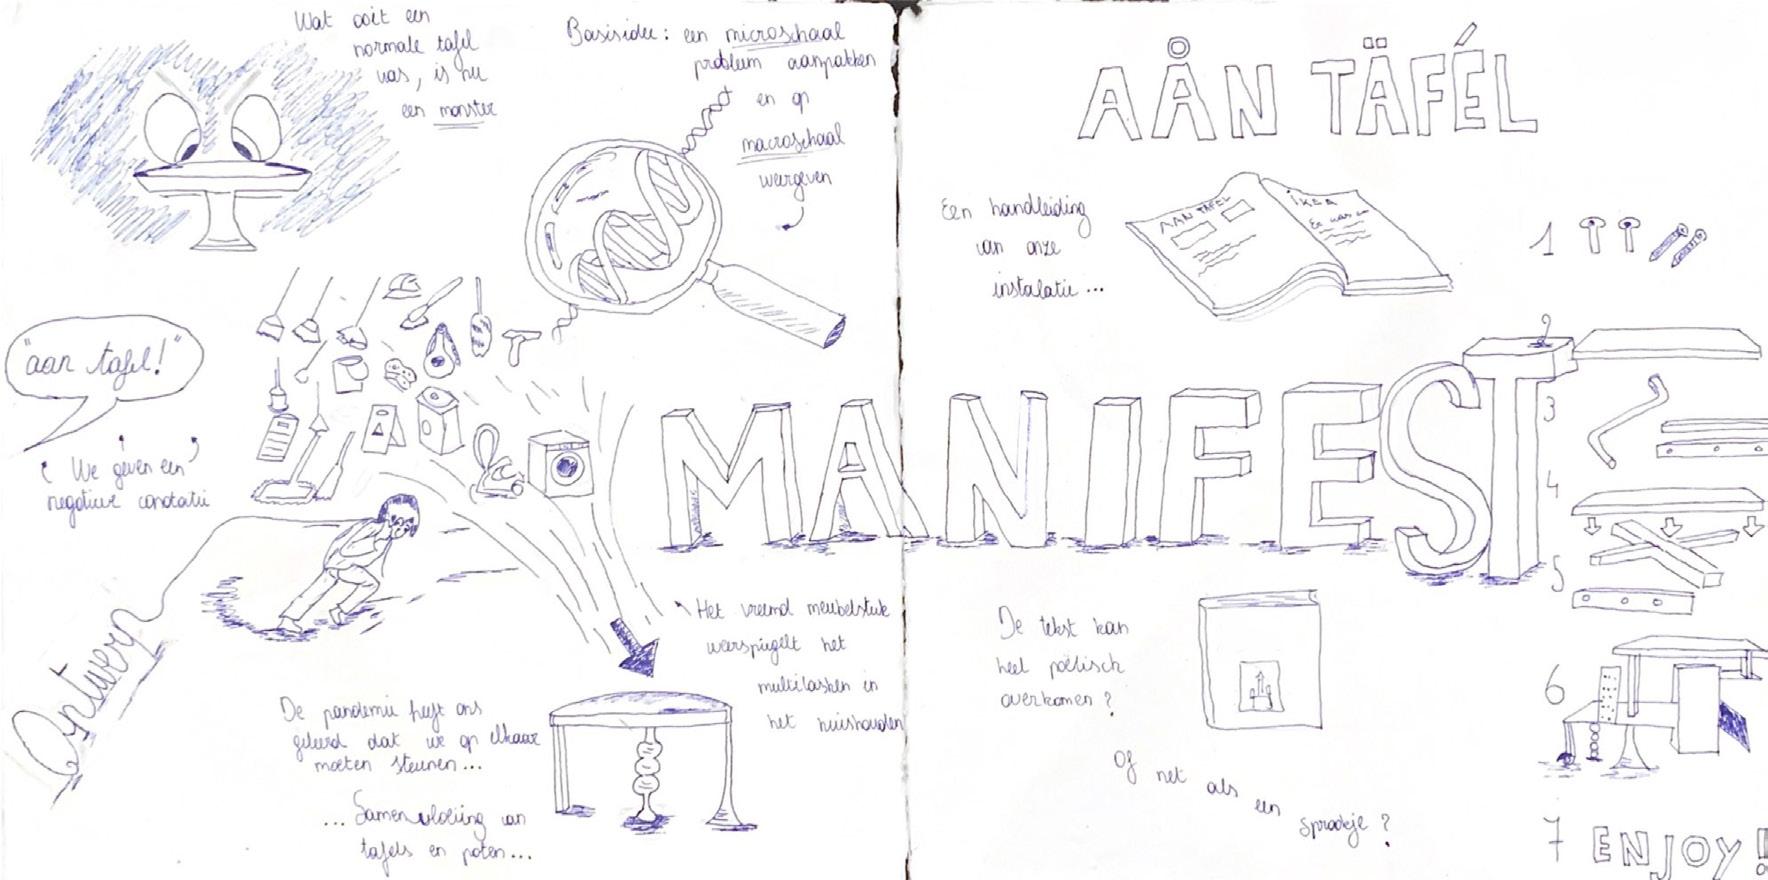 Wat ooit een
normale tafel
was, is nu
een monster
Basisidee: een microschaal
probleem aanpakken
en op
macroschaal
weergeven
"aan tafel!"
We geven een
negatieve conotatie
Ontwerp
De pandemie heeft ons
geleerd dat we op elkaar
moeten steunen...
... Samenvloeiing van
tafels en poten...
Het vreemd meubelstuk
weerspiegelt het
multitasken in
het huishouden
MANIFEST
AÅN TÄFÉL
Een handleiding
van onze
instalatie...
AAN TAFEL
IKEA
Er was een
De tekst kan
heel poëtisch
overkomen?
Of net als een sprookje?
1
2
3
4
5
6
7 ENJOY!!